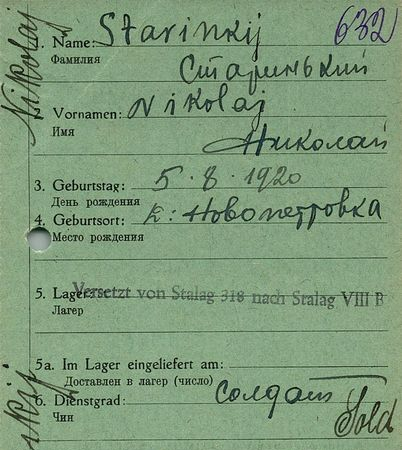 632
Nikolaj
Name: Starinkij
Фамилия
Старинький
Vornamen: Nikolaj
Имя
Николай
3. Geburtstag: 5.8.1920
День рождения
4. Geburtsort: Новопетровка
Место рождения
5. Lager: Versetzt von Stalag 318 nach Stalag VIII B
Лагерь
5a. Im Lager eingeliefert am:
Доставлен в лагерь (число)
6. Dienstgrad: солдат
Чин
Sold